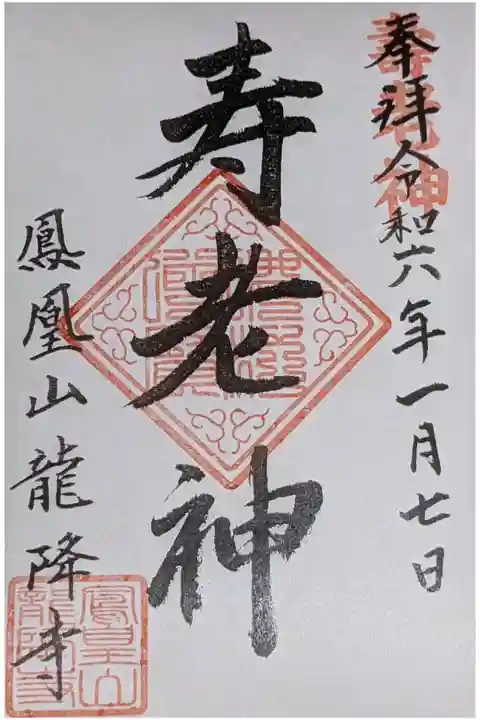 奉拝令和六年一月七日
壽老神
寿老神
鳳凰山龍降寺
鳳凰山
龍降寺